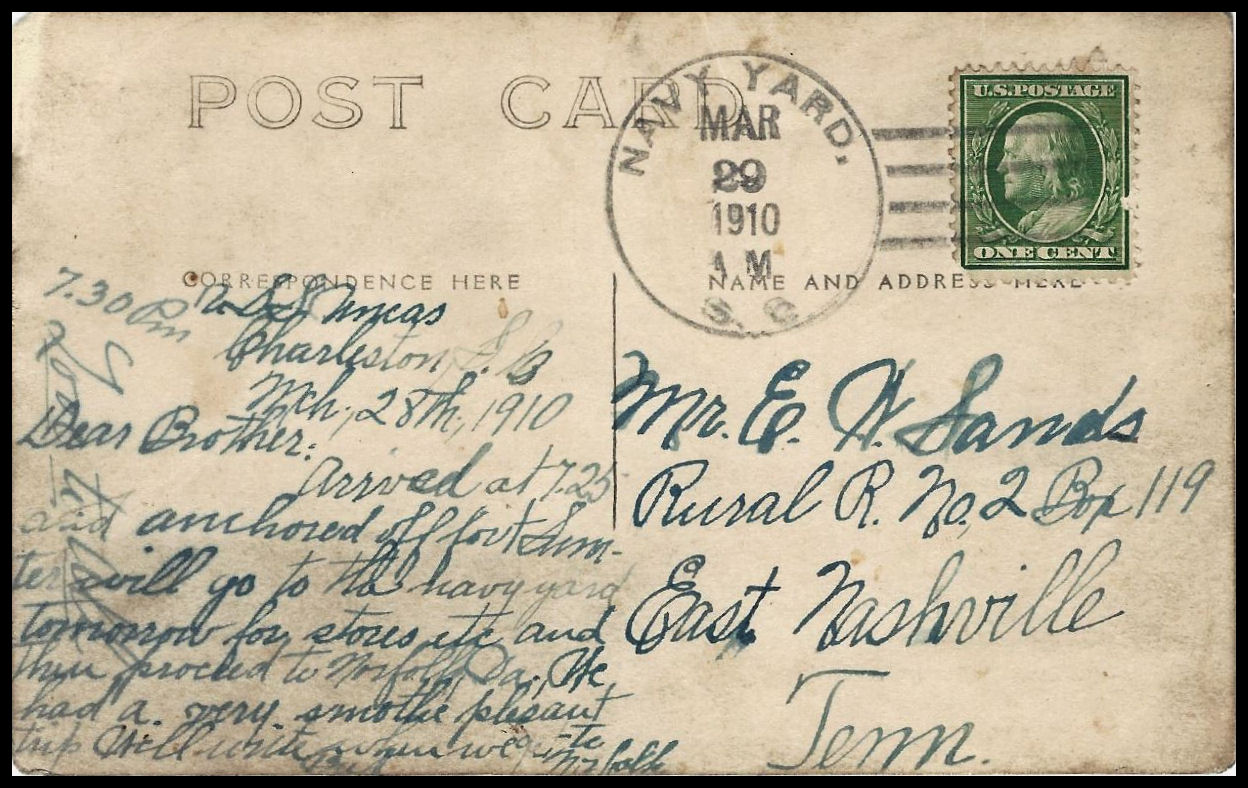 POST CARD
NAVY YARD.
MAR
29
1910
A M
S. C.
U.S.POSTAGE
ONE CENT
CORRESPONDENCE HERE
NAME AND ADDRESS HERE
7.30 Pm
Charleston S.C
Mch, 28th, 1910
Dear Brother:
Arrived at 7.25
and anchored off fort Sum-
ter will go to the navy yard
tomorrow for stores etc and
then proceed to Norfolk, Va., We
had a very smothe pleasant
trip Will write when we get to
Norfolk
Mr. E. W. Sands
Rural R. No. 2 Box 119
East Nashville
Tenn.